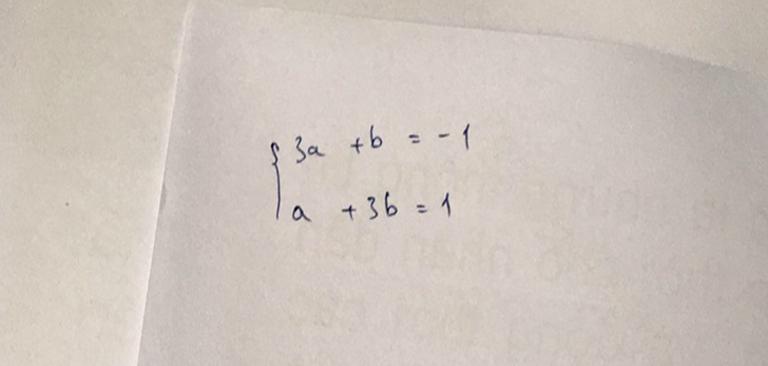 { 3a + b = -1
a + 3b = 1